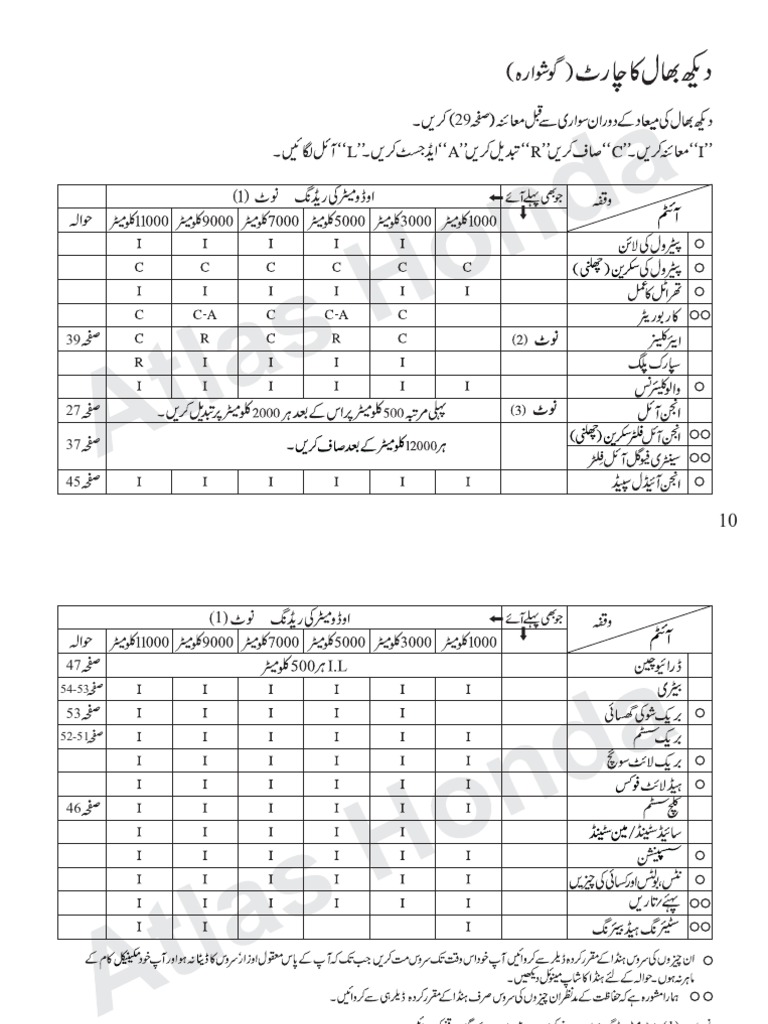 دیکھ بھال کا چارٹ (گوشوارہ)
دیکھ بھال کی میعاد کے دوران سواری سے قبل معائنہ (صفحہ 29) کریں۔
”I“ معائنہ کریں۔ ”C“ صاف کریں ”R“ تبدیل کریں ”A“ ایڈجسٹ کریں۔ ”L“ آئل لگائیں۔
وقفہ جو بھی پہلے آئے اوڈومیٹر کی ریڈنگ نوٹ (1)
آئٹم 1000کلومیٹر 3000کلومیٹر 5000کلومیٹر 7000کلومیٹر 9000کلومیٹر 11000کلومیٹر حوالہ
○ پیٹرول کی لائن I I I I I
○ پیٹرول کی سکرین (چھلنی) C C C C C C
○ تھراٹل کا عمل I I I I I I
○○ کاربوریٹر C C-A C C-A C
ایئر کلینر نوٹ (2) C R C R C صفحہ 39
سپارک پلگ I I I I R
○ والو کلیئرنس I I I I I I
انجن آئل نوٹ (3) پہلی مرتبہ 500 کلومیٹر پر اس کے بعد ہر 2000 کلومیٹر پر تبدیل کریں۔ صفحہ 27
○○ انجن آئل فلٹر سکرین (چھلنی)
ہر 12000 کلومیٹر کے بعد صاف کریں۔ صفحہ 37
○○ سینٹری فیوگل آئل فلٹر
○ انجن آئیڈل سپیڈ I I I I I I صفحہ 45
10
وقفہ جو بھی پہلے آئے اوڈومیٹر کی ریڈنگ نوٹ (1)
آئٹم 1000کلومیٹر 3000کلومیٹر 5000کلومیٹر 7000کلومیٹر 9000کلومیٹر 11000کلومیٹر حوالہ
ڈرائیو چین I.L ہر 500 کلومیٹر صفحہ 47
بیٹری I I I I I I صفحہ 53-54
○ بریک شو کی گھسائی I I I I I صفحہ 53
بریک سسٹم I I I I I I صفحہ 51-52
○ بریک لائٹ سوئچ I I I I I I
○ ہیڈ لائٹ فوکس I I I I I I
کلچ سسٹم I I I I I I صفحہ 46
سائیڈ سٹینڈ/مین سٹینڈ I I I I I
○ سسپینشن I I I I I I
○ نٹس، بولٹس اور کسائی کی چیزیں I I I I I I
○○ پہیے/تاریں I I I I I I
○○ سٹیئرنگ ہیڈ بیئرنگ I I I
○ ان چیزوں کی سروس ہنڈا کے مقرر کردہ ڈیلر سے کروائیں آپ خود اس وقت تک سروس مت کریں جب تک کہ آپ کے پاس معقول اوزار/سروس کا ڈیٹا نہ ہو اور آپ خود مکینیکل کام کے
ماہر نہ ہوں۔ حوالہ کے لئے ہنڈا کا شاپ مینوئل دیکھیں۔
○○ ہمارا مشورہ ہے کہ حفاظت کے مدنظر ان چیزوں کی سروس صرف ہنڈا کے مقرر کردہ ڈیلر ہی سے کروائیں۔
Atlas Honda
Atlas Honda